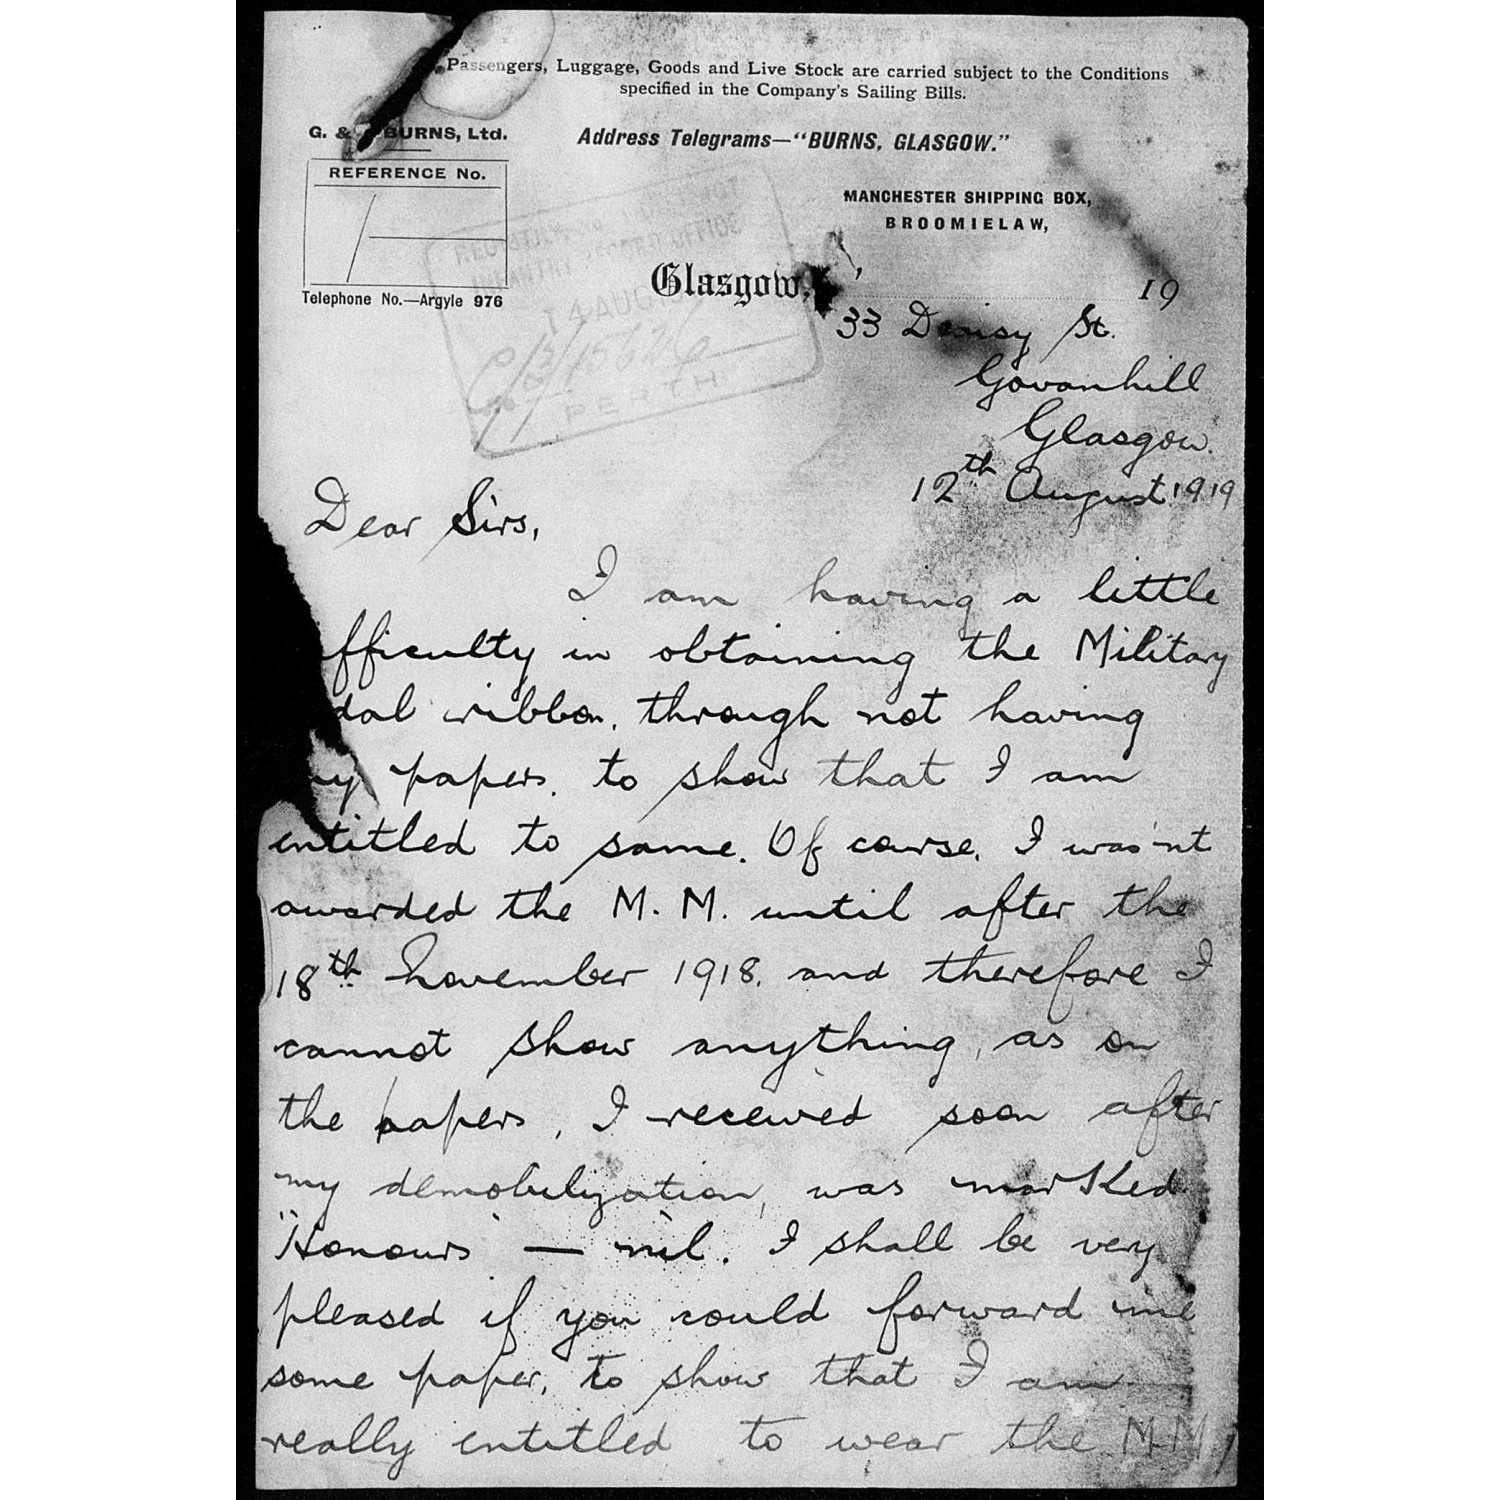 Passengers, Luggage, Goods and Live Stock are carried subject to the Conditions
specified in the Company's Sailing Bills.
G. & BURNS, Ltd.
Address Telegrams—"BURNS, GLASGOW."
REFERENCE No.
MANCHESTER SHIPPING BOX,
BROOMIELAW,
Glasgow, 19
Telephone No.—Argyle 976
RECORD OFFICE
INFANTRY
14 AUG 19
C/3/15626
PERTH
33 St.
Govanhill
Glasgow.
12th August 1919
Dear Sirs,
I am having a little
fficulty in obtaining the Military
dal ribbon, through not having
ny papers, to show that I am
entitled to same. Of course, I was'nt
awarded the M. M. until after the
18th November 1918, and therefore I
cannot show anything, as on
the papers, I received soon after
my demobilization, was marked
"Honours — nil. I shall be very
pleased if you could forward me
some paper, to show that I am
really entitled to wear the M.M